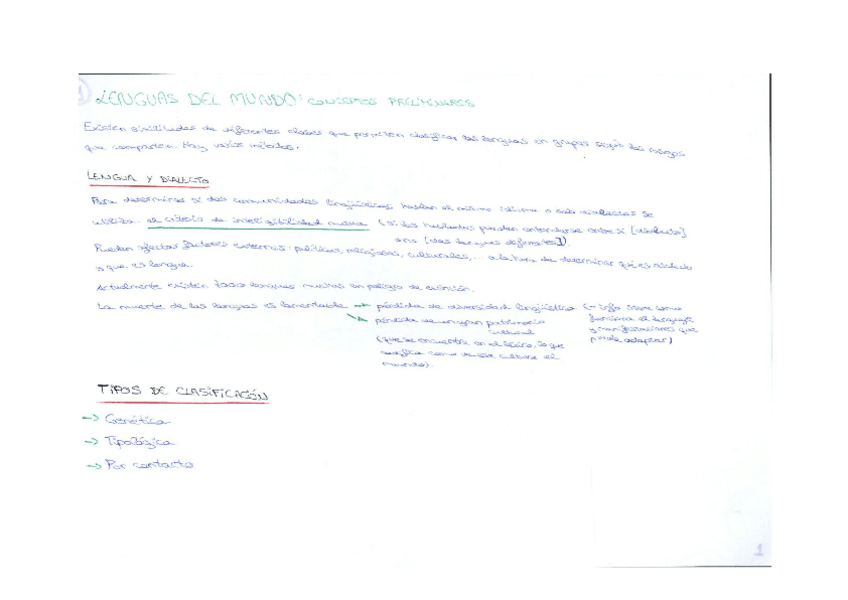 1
LENGUAS DEL MUNDO: CONCEPTOS PRELIMINARES
Existen similitudes de diferentes clases que permiten clasificar las lenguas en grupos según los rasgos
que comparten. Hay varios métodos.
LENGUA Y DIALECTO
Para determinar si dos comunidades lingüísticas hablan el mismo idioma o solo dialectos se
utiliza el criterio de inteligibilidad mutua (si los hablantes pueden entenderse entre sí [dialecto]
o no [dos lenguas diferentes])
Pueden afectar factores externos: políticos, religiosos, culturales,... a la hora de determinar qué es dialecto
y que es lengua.
Actualmente existen lenguas muchas en peligro de extinción.
La muerte de las lenguas es lamentable → pérdida de diversidad lingüística (- info sobre como
funciona el lenguaje
y manifestaciones que
puede adoptar)
→ pérdida de un gran patrimonio
cultural
(que se encuentra en el léxico, lo que
como ve esa cultura el
mundo).
TIPOS DE CLASIFICACIÓN
→ Genética
→ Tipológica
→ Por contacto
1